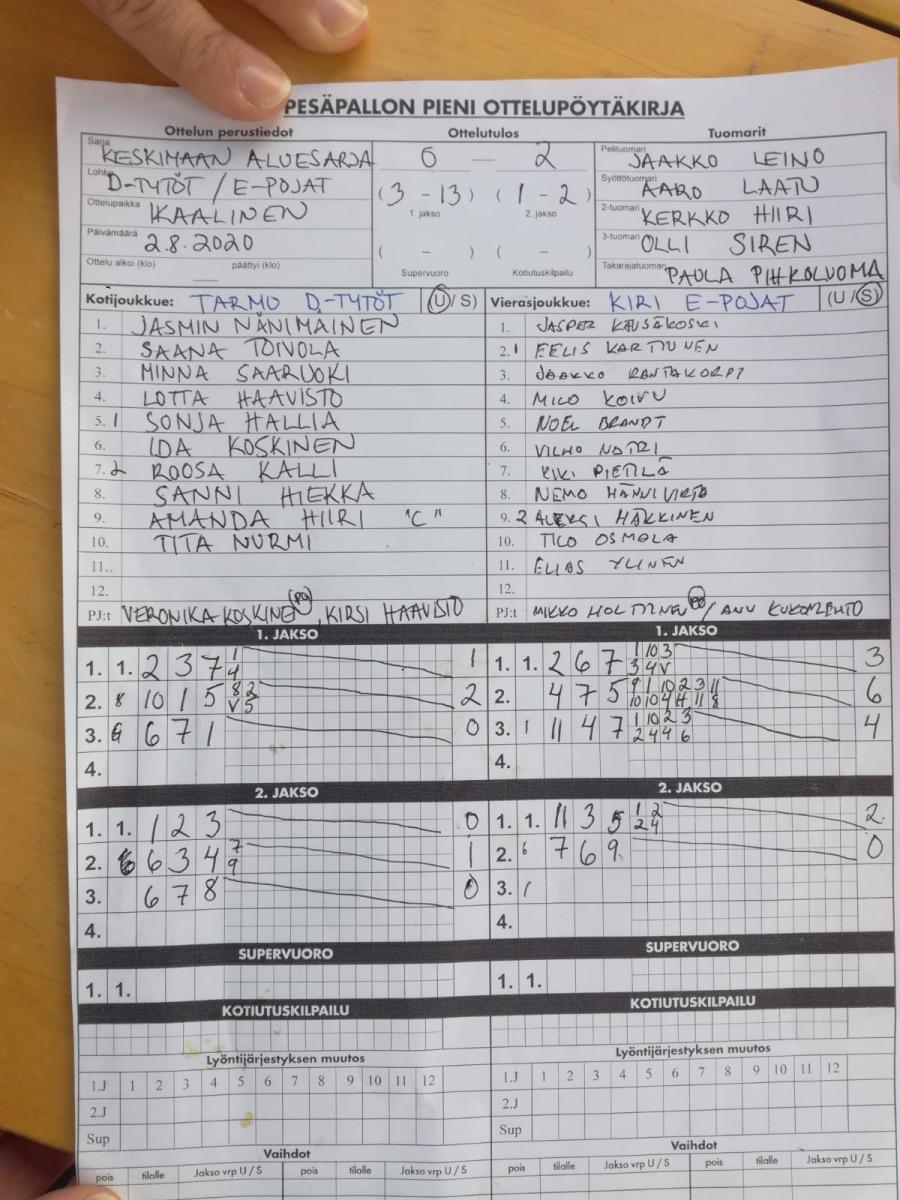 PESÄPALLON PIENI OTTELUPÖYTÄKIRJA
Ottelun perustiedot Ottelutulos Tuomarit
Sarja KESKIMAAN ALUESARJA 0 — 2 Pelituomari JAAKKO LEINO
Lohko D-TYTÖT / E-POJAT (3 - 13) (1 - 2) Syöttötuomari AARO LAATU
Ottelupaikka IKAALINEN 1. jakso 2. jakso 2-tuomari KERKKO HIIRI
Päivämäärä 2.8.2020 ( - ) ( - ) 3-tuomari OLLI SIREN
Ottelu alkoi (klo) — päättyi (klo) Supervuoro Kotiutuskilpailu Takarajatuomari PAULA PIHKOLUOMA
Kotijoukkue: TARMO D-TYTÖT (U/S) Vierasjoukkue: KIRI E-POJAT (U/S)
1. JASMIN NÄNIMAINEN 1. JASPER
2. SAANA TOIVOLA 2. 1 EELIS KARTTUNEN
3. MINNA SAARUOKI 3. JAAKKO RANTAKORPI
4. LOTTA HAAVISTO 4. MICO KOIVU
5. 1 SONJA HALLIA 5. NOEL BRANDT
6. IDA KOSKINEN 6. VILHO
7. 2 ROOSA KALLI 7. KIKI PIETILÄ
8. SANNI HIEKKA 8. NEMO
9. AMANDA HIIRI "C" 9. 2 ALEKSI HÄKKINEN
10. TITA NURMI 10. TICO OSMALA
11. 11. ELIAS YLINEN
12. 12.
PJ:t VERONIKA KOSKINE (PJ), KIRSI HAAVISTO PJ:t MIKKO / ANU
1. JAKSO 1. JAKSO
1. 1. 2 3 7 1 4 1 1. 1. 2 6 7 1 10 3 3 4 V 3
2. 8 10 1 5 8 2 V 5 2 2. 4 7 5 9 1 10 2 3 11 10 10 4 4 11 8 6
3. 6 6 7 1 0 3. 1 11 4 7 1 10 2 3 2 4 4 6 4
4. 4.
2. JAKSO 2. JAKSO
1. 1. 1 2 3 0 1. 1. 11 3 5 1 2 2 4 2.
2. 6 6 3 4 7 9 1 2. 6 7 6 9 0
3. 6 7 8 0 3. 1
4. 4.
SUPERVUORO SUPERVUORO
1. 1. 1. 1.
KOTIUTUSKILPAILU KOTIUTUSKILPAILU
Lyöntijärjestyksen muutos Lyöntijärjestyksen muutos
1.J 1 2 3 4 5 6 7 8 9 10 11 12 1.J 1 2 3 4 5 6 7 8 9 10 11 12
2.J 2.J
Sup Sup
Vaihdot Vaihdot
pois tilalle Jakso vrp U / S pois tilalle Jakso vrp U / S pois tilalle Jakso vrp U / S pois tilalle Jakso vrp U / S